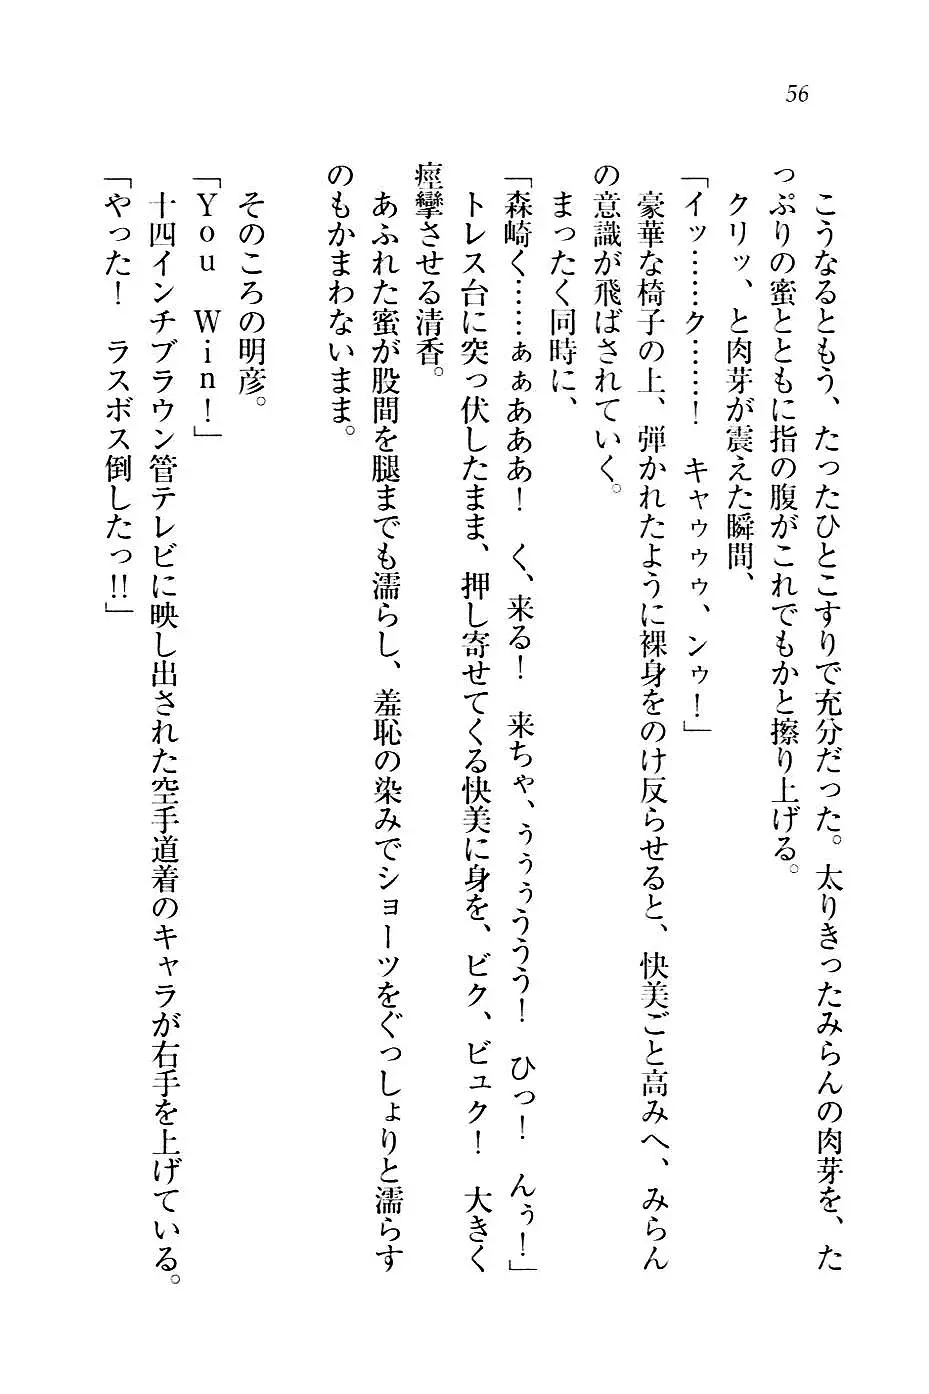 56
こうなるともう、たったひとこすりで充分だった。太りきったみらんの肉芽を、た
っぷりの蜜とともに指の腹がこれでもかと擦り上げる。
クリッ、と肉芽が震えた瞬間、
「イッ……ク……！　キャゥゥゥ、ンゥ！」
豪華な椅子の上、弾かれたように裸身をのけ反らせると、快美ごと高みへ、みらん
の意識が飛ばされていく。
まったく同時に、
「森崎く……ぁぁあああ！　く、来る！　来ちゃ、ぅぅぅううう！　ひっ！　んぅ！」
トレス台に突っ伏したまま、押し寄せてくる快美に身を、ビク、ビュク！　大きく
痙攣させる清香。
あふれた蜜が股間を腿までも濡らし、羞恥の染みでショーツをぐっしょりと濡らす
のもかまわないまま。
そのころの明彦。
「Ｙｏｕ　Ｗｉｎ！」
十四インチブラウン管テレビに映し出された空手道着のキャラが右手を上げている。
「やった！　ラスボス倒したっ!!」